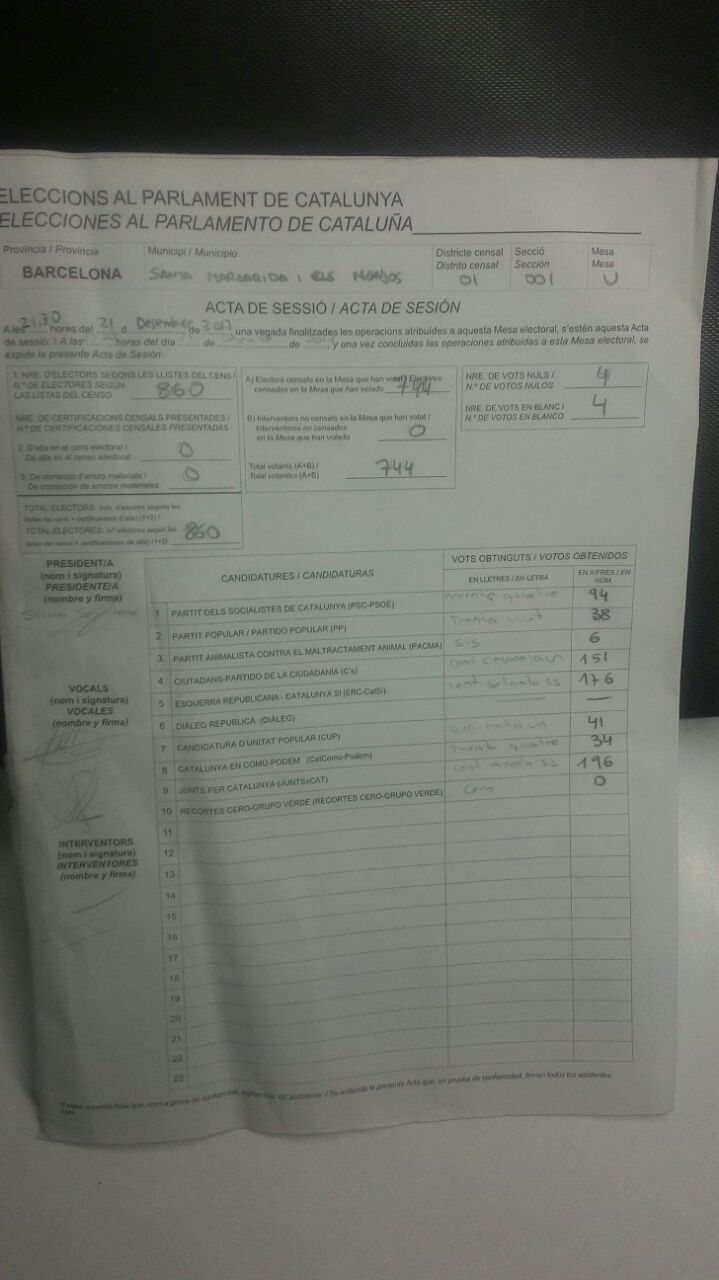 ELECCIONS AL PARLAMENT DE CATALUNYA
ELECCIONES AL PARLAMENTO DE CATALUÑA
Província / Provincia Municipi / Municipio Districte censal Secció Mesa
Distrito censal Sección Mesa
BARCELONA SANTA MARGARIDA I ELS MONJOS 01 001 U
ACTA DE SESSIÓ / ACTA DE SESIÓN
A les 21,30 hores del 21 d Desembre de 2017 una vegada finalitzades les operacions atribuïdes a aquesta Mesa electoral, s'estén aquesta Acta
de sessió: / A las horas del día de de y una vez concluidas las operaciones atribuidas a esta Mesa electoral, se
expide la presente Acta de Sesión:
1. NRE. D'ELECTORS SEGONS LES LLISTES DEL CENS /
N.º DE ELECTORES SEGÚN
LAS LISTAS DEL CENSO 860
NRE. DE CERTIFICACIONS CENSALS PRESENTADES /
N.º DE CERTIFICACIONES CENSALES PRESENTADAS
2. D'alta en el cens electoral /
De alta en el censo electoral: 0
3. De correcció d'errors materials /
De corrección de errores materiales: 0
TOTAL ELECTORS (nre. d'electors segons les
llistes del cens + certificacions d'alta) (1+2) /
TOTAL ELECTORES: (nº electores según las
listas del censo + certificaciones de alta) (1+2) 860
A) Electors censats en la Mesa que han votat / Electores
censados en la Mesa que han votado 744
B) Interventors no censats en la Mesa que han votat /
Interventores no censados
en la Mesa que han votado 0
Total votants (A+B) /
Total votantes (A+B) 744
NRE. DE VOTS NULS /
N.º DE VOTOS NULOS 4
NRE. DE VOTS EN BLANC /
N.º DE VOTOS EN BLANCO 4
PRESIDENT/A
(nom i signatura)
PRESIDENTE/A
(nombre y firma)
VOCALS
(nom i signatura)
VOCALES
(nombre y firma)
INTERVENTORS
(nom i signatura)
INTERVENTORES
(nombre y firma)
CANDIDATURES / CANDIDATURAS
VOTS OBTINGUTS / VOTOS OBTENIDOS
EN LLETRES / EN LETRA EN XIFRES / EN NÚM.
1 PARTIT DELS SOCIALISTES DE CATALUNYA (PSC-PSOE) noranta quatre 94
2 PARTIT POPULAR / PARTIDO POPULAR (PP) trenta vuit 38
3 PARTIT ANIMALISTA CONTRA EL MALTRACTAMENT ANIMAL (PACMA) sis 6
4 CIUTADANS-PARTIDO DE LA CIUDADANÍA (C's) cent cinquanta un 151
5 ESQUERRA REPUBLICANA - CATALUNYA SÍ (ERC-CatSí) cent setanta sis 176
6 DIÀLEG REPUBLICÀ (DIÀLEG) —
7 CANDIDATURA D'UNITAT POPULAR (CUP) quaranta un 41
8 CATALUNYA EN COMÚ-PODEM (CatComú-Podem) trenta quatre 34
9 JUNTS PER CATALUNYA (JUNTSxCAT) cent noranta sis 196
10 RECORTES CERO-GRUPO VERDE (RECORTES CERO-GRUPO VERDE) Cero 0
11
12
13
14
15
16
17
18
19
20
21
22
23
S'estén aquesta Acta que, com a prova de conformitat, signen tots els assistents. / Se extiende la presente Acta que, en prueba de conformidad, firman todos los asistentes.